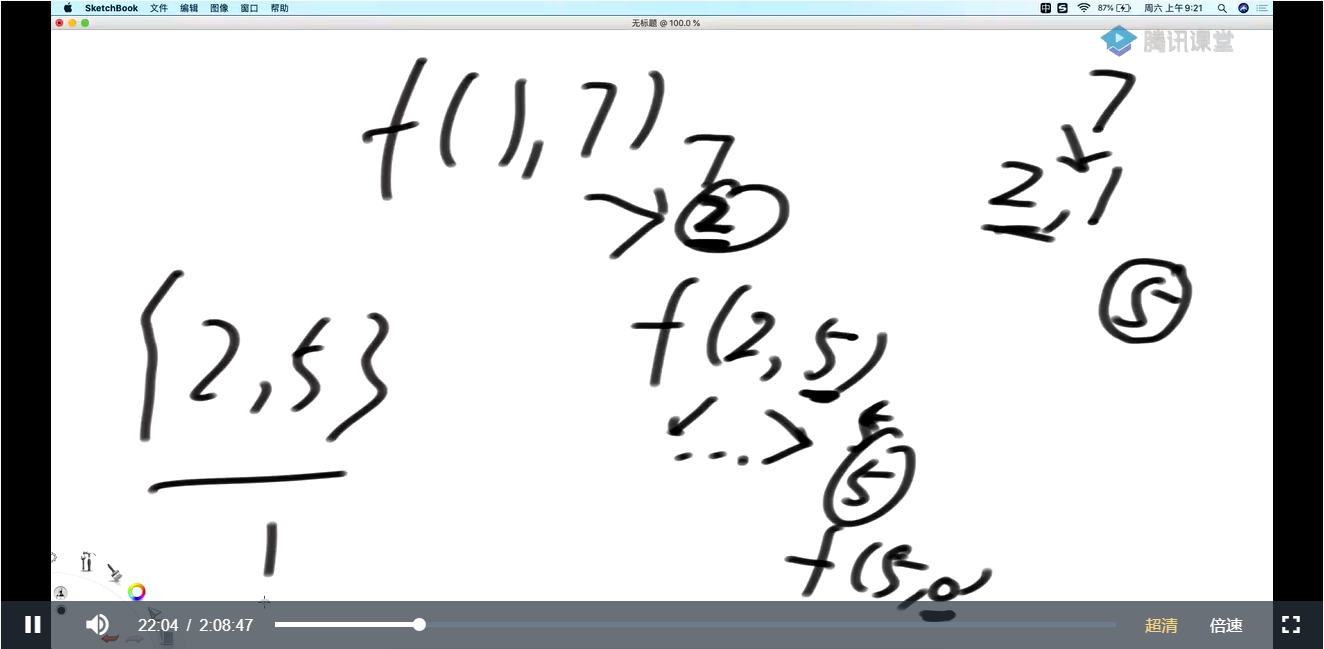 SketchBook 文件 编辑 图像 窗口 帮助 87% 周六 上午9:21
无标题 @ 100.0 %
腾讯课堂
f(1,7)
7
7
2
2,1
5
{2,5}
f(2,5)
...
5
1
f(5,0)
22:04 / 2:08:47 超清 倍速